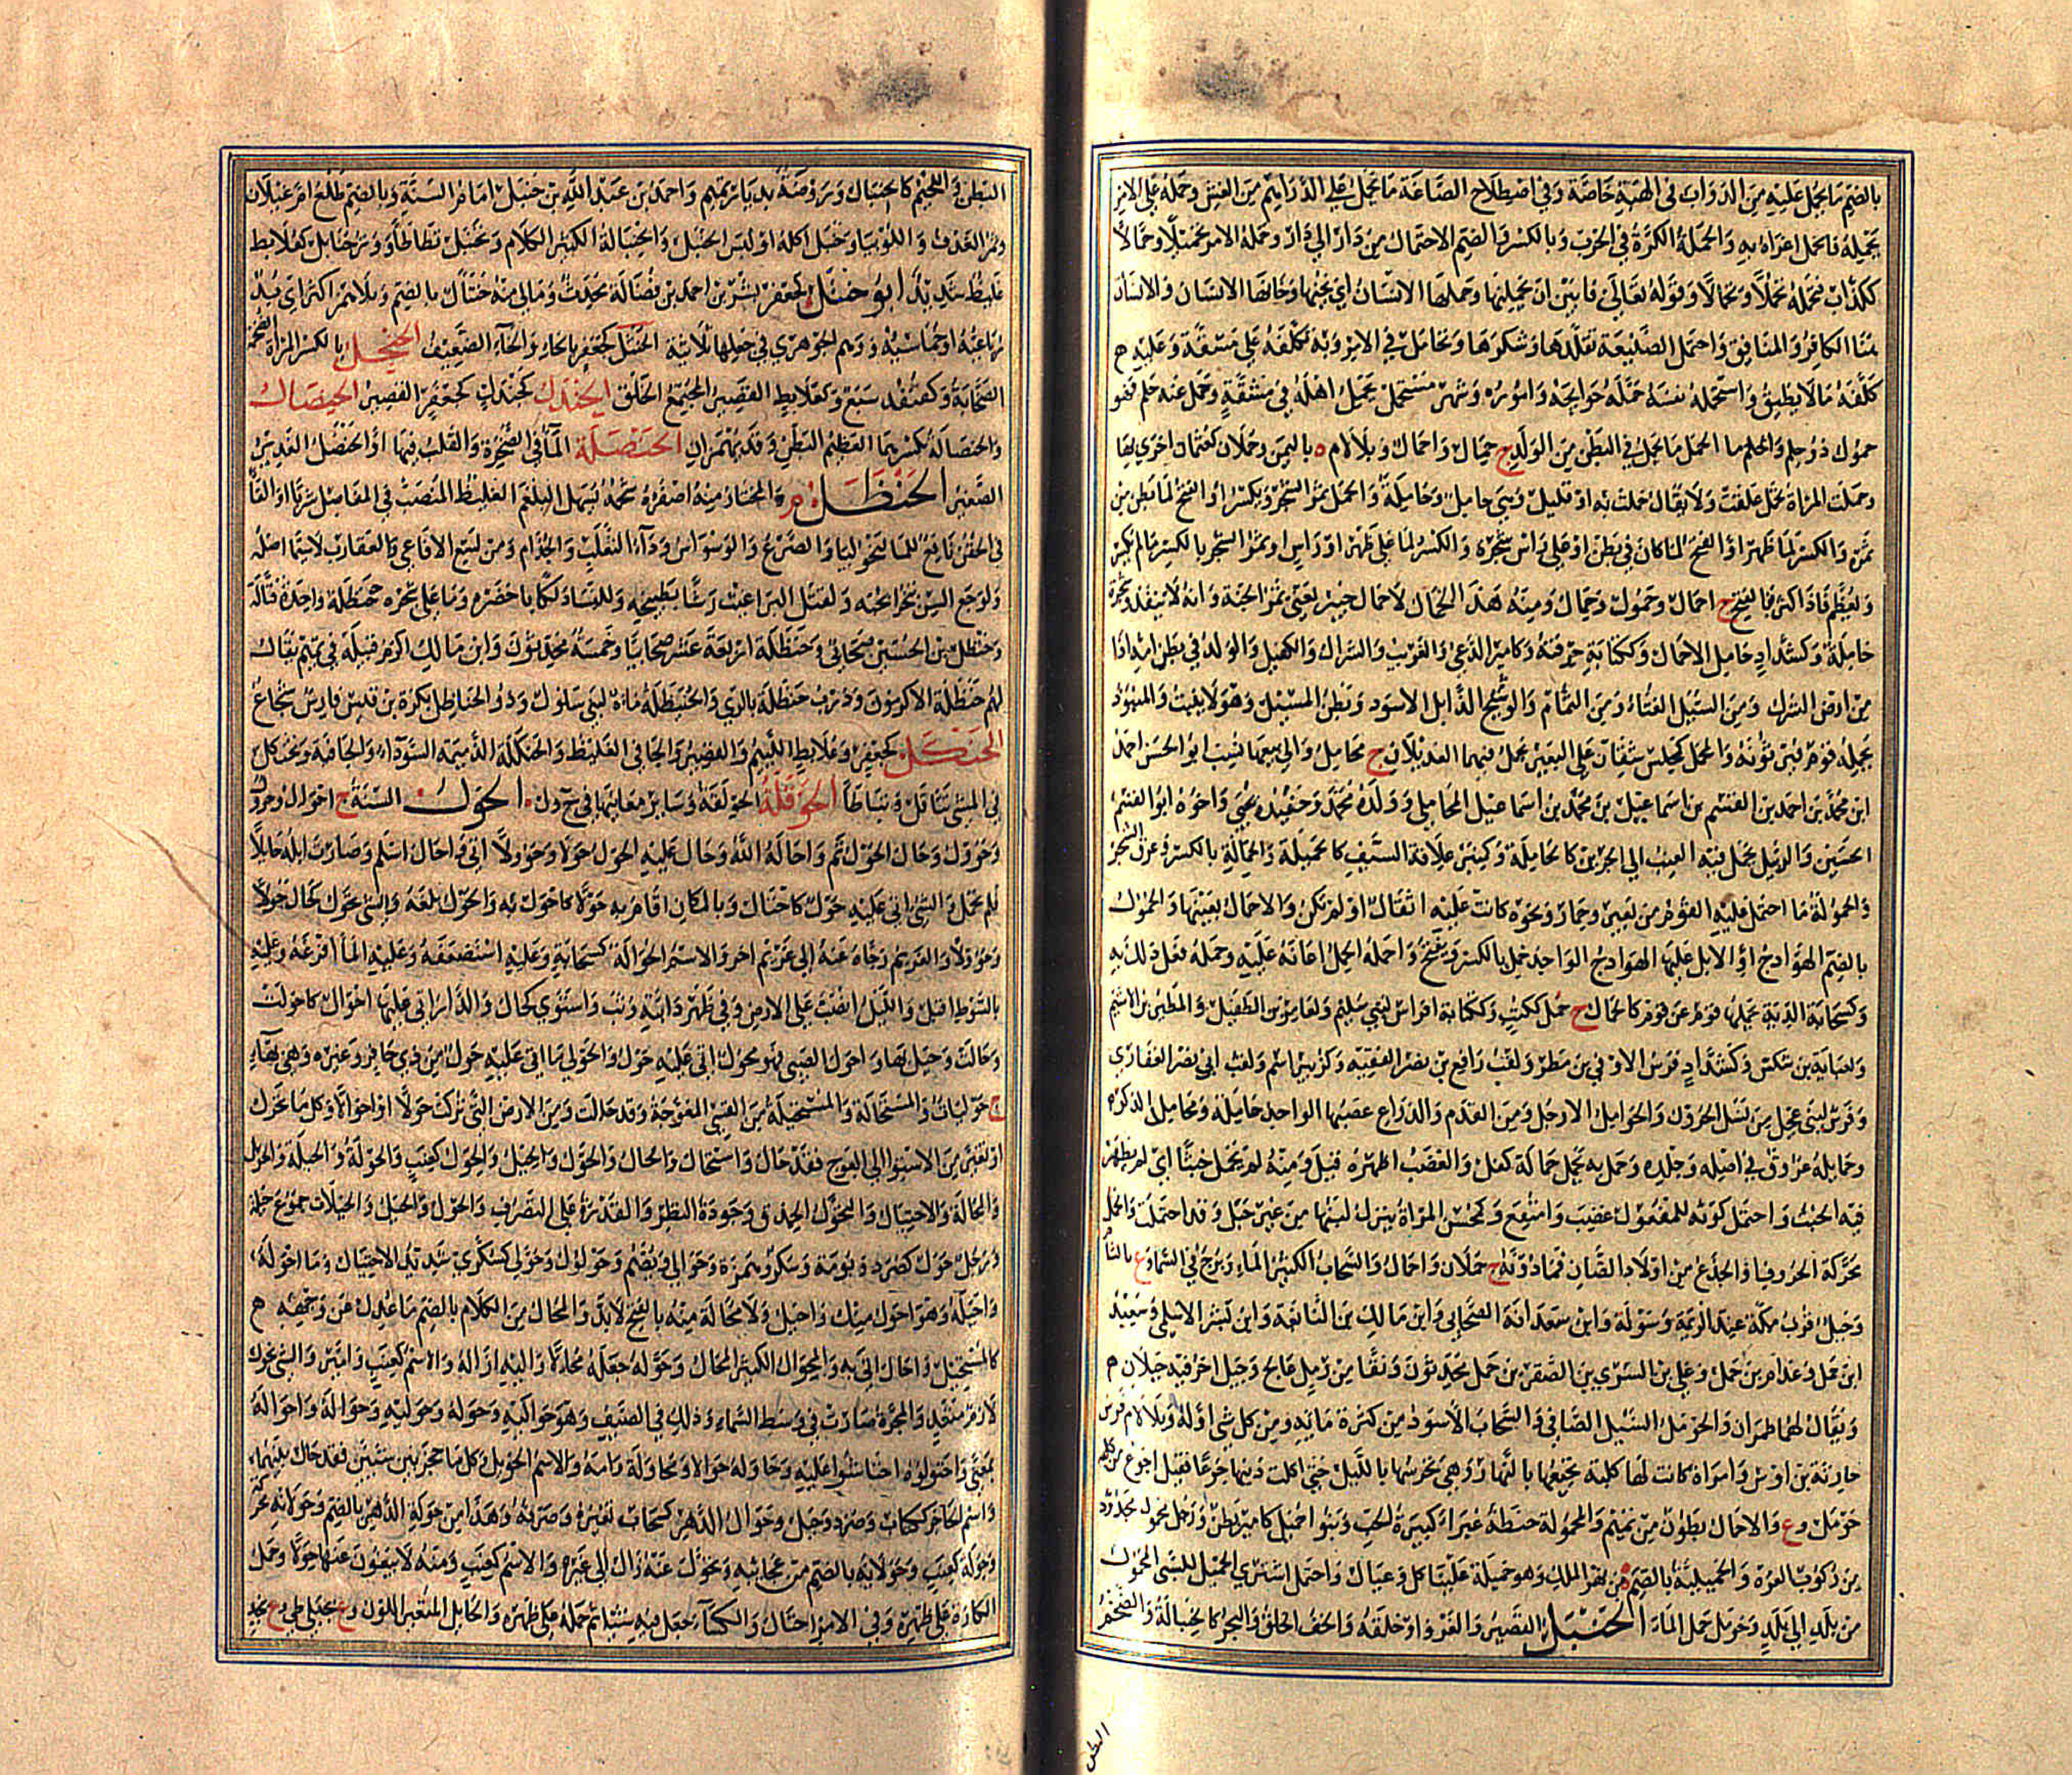 بالضم ما يحمل عليه من الدواب في الهبة خاصة وفي اصطلاح الصاغة ما يحمل على الدراهم من الغش وحمله على الامر
يحمله فانحمل اغراه به والحملة الكرة في الحرب وبالكسر والضم الاحتمال من دار الى دار وحمله الامر تحميلا وحمالا
ككذاب فتحمله تحملا وتحمالا وقوله تعالى فابين ان يحملنها وحملها الانسان اي يخنها وخانها الانسان والانسان
هنا الكافر والمنافق واحتمل الصنيعة تقلدها وشكرها وتحامل في الامر وبه تكلفه على مشقة وعليه
كلفه ما لا يطيق واستحمله نفسه حمله حوايجه واموره وشهر مستحمل يحمل اهله في مشقة وحمل عنه حلم فهو
حمول ذو حلم والحمل ما يحمل في البطن من الولد ج حمال واحمال وبلا لام ة باليمن وحملان كعثمان اخرى بها
وحملت المراة تحمل علقت ولا يقال حملت به او قليل وهي حامل وحاملة والحمل ثمر الشجر ويكسر او الفتح لما بطن من
ثمره والكسر لما ظهر او الفتح لما كان في بطن او على راس شجرة والكسر لما على ظهر او راس او ثمر الشجر بالكسر ما لم يكبر
ويعظم فاذا كثر فبالفتح ج احمال وحمول وحمال ومنه هذا الحمال لا حمال خيبر يعني ثمر الجنة وانه لا ينفد وشجرة
حاملة وكشداد حامل الاحمال وككتابة حرفته وكامير الدعي والغريب والشراك والكفيل والولد في بطن امه اذا
من ارض الشرك ومن السيل الغثاء ومن الثمام والوشيج الذابل الاسود وبطن المسيل وهو لا ينبت والمنبوذ
يحمله قوم فيربونه والمحمل كمجلس شقان على البعير يحمل فيهما العديلان ج محامل والى بيعها نسب ابو الحسن احمد
ابن محمد بن احمد بن القسم بن اسماعيل بن محمد بن اسماعيل المحاملي وولده محمد وحفيده يحيى واخوه ابو القسم
الحسين والزبيل يحمل فيه العنب الى الجرين كالحاملة وكمنبر علاقة السيف كالحميلة والحمالة بالكسر وعرق الشجر
والحمولة ما احتمل عليه القوم من بعير وحمار ونحوه كانت عليه اثقال او لم تكن والاحمال بعينها والحمول
بالضم الهوادج او الابل عليها الهوادج الواحد حمل بالكسر ويفتح واحمله الحمل اعانه عليه وحمله فعل ذلك به
وكسحابة الدية يحملها قوم عن قوم كالحمال ج حمل ككتب وككتابة افراس لبني سليم ولعامر بن الطفيل ولمطير بن الاشيم
ولعباية بن شكس وكشداد فرس الاوفى بن مطر ولقب رافع بن نصر الفقيه وكزبير اسم ولقب ابي نصر الغفاري
وفرس لبني عجل من نسل الحرون والحوامل الارجل ومن القدم والذراع عصبها الواحد حاملة ومحامل الذكر
وحمايله عروق في اصله وجلده وحمل به يحمل حمالة كفل والغضب اظهره قيل ومنه لم يحمل خبثا اي لم يظهر
فيه الخبث واحتمل لونه للمفعول غضب وامتقع وكمحسن المراة ينزل لبنها من غير حبل وقد احملت والحمل
محركة الخروف او الجذع من اولاد الضان فما دونه ج حملان واحمال والسحاب الكثير الماء وبرج في السماء و ع بالشام
وجبل قرب مكة عند الزيمة وسولة وابن سعدانة الصحابي وابن مالك بن النابغة وابن بشر الاسلمي وسعيد
ابن حمل وعدام بن حمل وعلي بن السري بن الصقر بن حمل محدثون ونقا من رمل عالج وجبل اخر فيه جبلان
ويقال لهما طمران والحومل السيل الصافي والسحاب الاسود من كثرة مائه ومن كل شيء اوله وبلا لام فرس
حارثة بن اوس وامراة كانت لها كلبة تجيعها بالنهار وهي تحرسها بالليل حتى اكلت ذنبها جوعا فقيل اجوع من كلبة
حومل و ع والاحمال بطون من تميم والمحمولة حنطة غبراء كبيرة الحب وبنو احميل كامير بطن ورجل محمول مجدود
من ركوب الفره والحميلية بالضم ة من نهر الملك وهو حميلة علينا كل وعيال واحتمل اشترى الحميل للشيء المحمول
من بلد الى بلد وحومل حمل الماء الحنبل القصير والفرو او خلقه والخف الخلق والبحر كالحنبالة والضخم
البطن
البطن واللحيم كالحنبال وروضة بديار تميم واحمد بن عبد الله بن حنبل امام السنة وبالضم طلع ام غيلان
وثمر الغاف واللوبيا وحنبل اكله او لبس الحنبل والحنبالة الكثير الكلام وتحنبل تطاطا ووتر حنابل كعلابط
غليظ شديد ابو حنتل كجعفر بشر بن احمد بن فضالة محدث وما لي منه حنتال بالضم وبلا همز اكثر اي بد
رباعية او خماسية ووهم الجوهري في جعلها ثلاثية الحنثل كجعفر بالحاء والخاء الضعيف الحنجل بالكسر المراة الضخمة
الصخابة وكقنفذ سبع وكعلابط القصير المجتمع الخلق الحندل كجندل كجعفر القصير الحنصال
والحنصالة بكسرهما العظيم البطن وقد يهمزان الحنضلة الماء في الصخرة والقلت فيها او الحنضل الغدير
الصغير الحنظل م والمختار منه اصفره شحمه يسهل البلغم الغليظ المنصب في المفاصل شربا او القاء
في الحقن نافع للماليخوليا والصرع والوسواس وداء الثعلب والجذام ومن لسع الافاعي والعقارب لا سيما اصله
ولوجع السن تبخرا بحبه ولقتل البراغيث رشا بطبيخه وللنسا دلكا باخضره وما على شجره حنظلة واحدة قتالة
وحنظل بن الحسين صحابي وحنظلة اربعة عشر صحابيا وخمسة محدثون وابن مالك اكرم قبيلة في تميم يقال
لهم حنظلة الاكرمون ودرب حنظلة بالري والحنيظلة ماءة لبني سلول وذو الحناظل نكرة بن قيس فارس شجاع
الحنكل كجعفر وعلابط اللئيم والقصير والجافي الغليظ والحنكلة الدميمة السوداء والجافية وحنكل
في المشي تثاقل وتباطا الحوقلة الحوقلة في ساير معانيها في ح د ل الحول السنة ج احوال وحؤول
وحوول وحال الحول تم واحاله الله وحال عليه الحول حولا وحوولا اتى واحال اسلم وصارت ابله حايلا
فلم تحمل والشي اتى عليه حول كاحتال وبالمكان اقام به حولا كاحول به والحول بلغه والشي تحول كحال حولا
وحوولا والغريم زجاه عنه الى غريم اخر والاسم الحوالة كسحابة وعليه استضعفه وعليه الماء افرغه وعليه
بالسوط اقبل والليل انصب على الارض وفي ظهر دابته وثب واستوى كحال والدار اتى عليها احوال كاحولت
وحالت وحيل بها واحول الصبي فهو محول اتى عليه حول والحولي ما اتى عليه حول من ذي حافر وغيره وهي بهاء
ج حوليات والمستحالة والمستحيلة من القسي المعوجة وقد حالت ومن الارض التي تركت حولا او احوالا وكل ما تحرك
او تغير من الاستواء الى العوج فقد حال واستحال والحال والحول والحيل والحول كعنب والحولة والحيلة والحويل
والمحالة والاحتيال والتحول الحذق وجودة النظر والقدرة على التصرف والحول والحيل والحيلات جموع حيلة
ورجل حول كصرد وبومة وسكر وهمزة وحوالي ويضم وحولول وحولي كسكري شديد الاحتيال وما احوله
واحيله وهو احول منك واحيل ولا محالة منه بالفتح لا بد والمحال من الكلام بالضم ما عدل عن وجهه
كالمستحيل واحال اتى به والمحوال الكثير المحال وحوله جعله محالا واليه ازاله والاسم كعنب وامير والشي تحول
لازم متعد والمجرة صارت في وسط السماء وذلك في الصيف وهو حواليه وحوله وحوليه وحواله واحواله
بمعنى واحتولوه احتاشوا عليه وحاوله حوالا ومحاولة رامه والاسم الحويل وكل ما حجز بين شيئين فقد حال بينهما
واسم الحاجز ككتاب وصرد وجبل وحوال الدهر كسحاب تغيره وصرفه وهذا من حولة الدهر بالضم وحولانه محركة
وحوله كعنب وحولايه بالضم من عجائبه وتحول عنه زال الى غيره والاسم كعنب ومنه لا يبغون عنها حولا وحمل
الكارة على ظهره وفي الامر احتال والكساء جعل فيه شيئا ثم حمله على ظهره والحايل المتغير اللون و ع بجبلي طي و ع بنجد